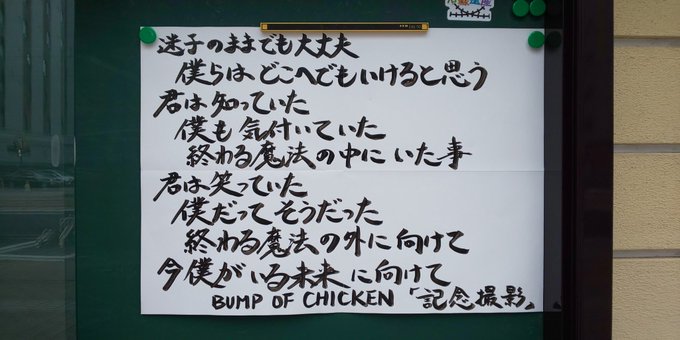 迷子のままでも大丈夫
僕らはどこへでもいけると思う
君は知っていた
僕も気付いていた
終わる魔法の中にいた事
君は笑っていた
僕だってそうだった
終わる魔法の外に向けて
今僕がいる未来に向けて
BUMP OF CHICKEN 「記念撮影」